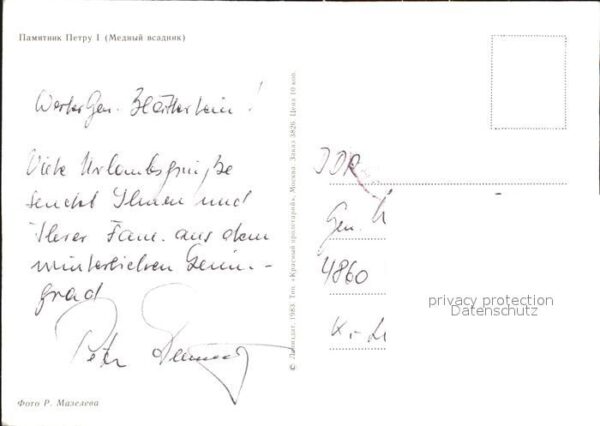 Памятник Петру I (Медный всадник)
Werter Gen. !
Viele Urlaubsgrüße
sendet Ihnen und
Ihrer Fam. aus dem
winterlichen Lenin-
grad
Peter
Фото Р. Мазелева
© Лениздат, 1983. Тип. «Красный пролетарий», Москва. Заказ 3826. Цена 10 коп.
DDR
Gen.
4860
privacy protection
Datenschutz